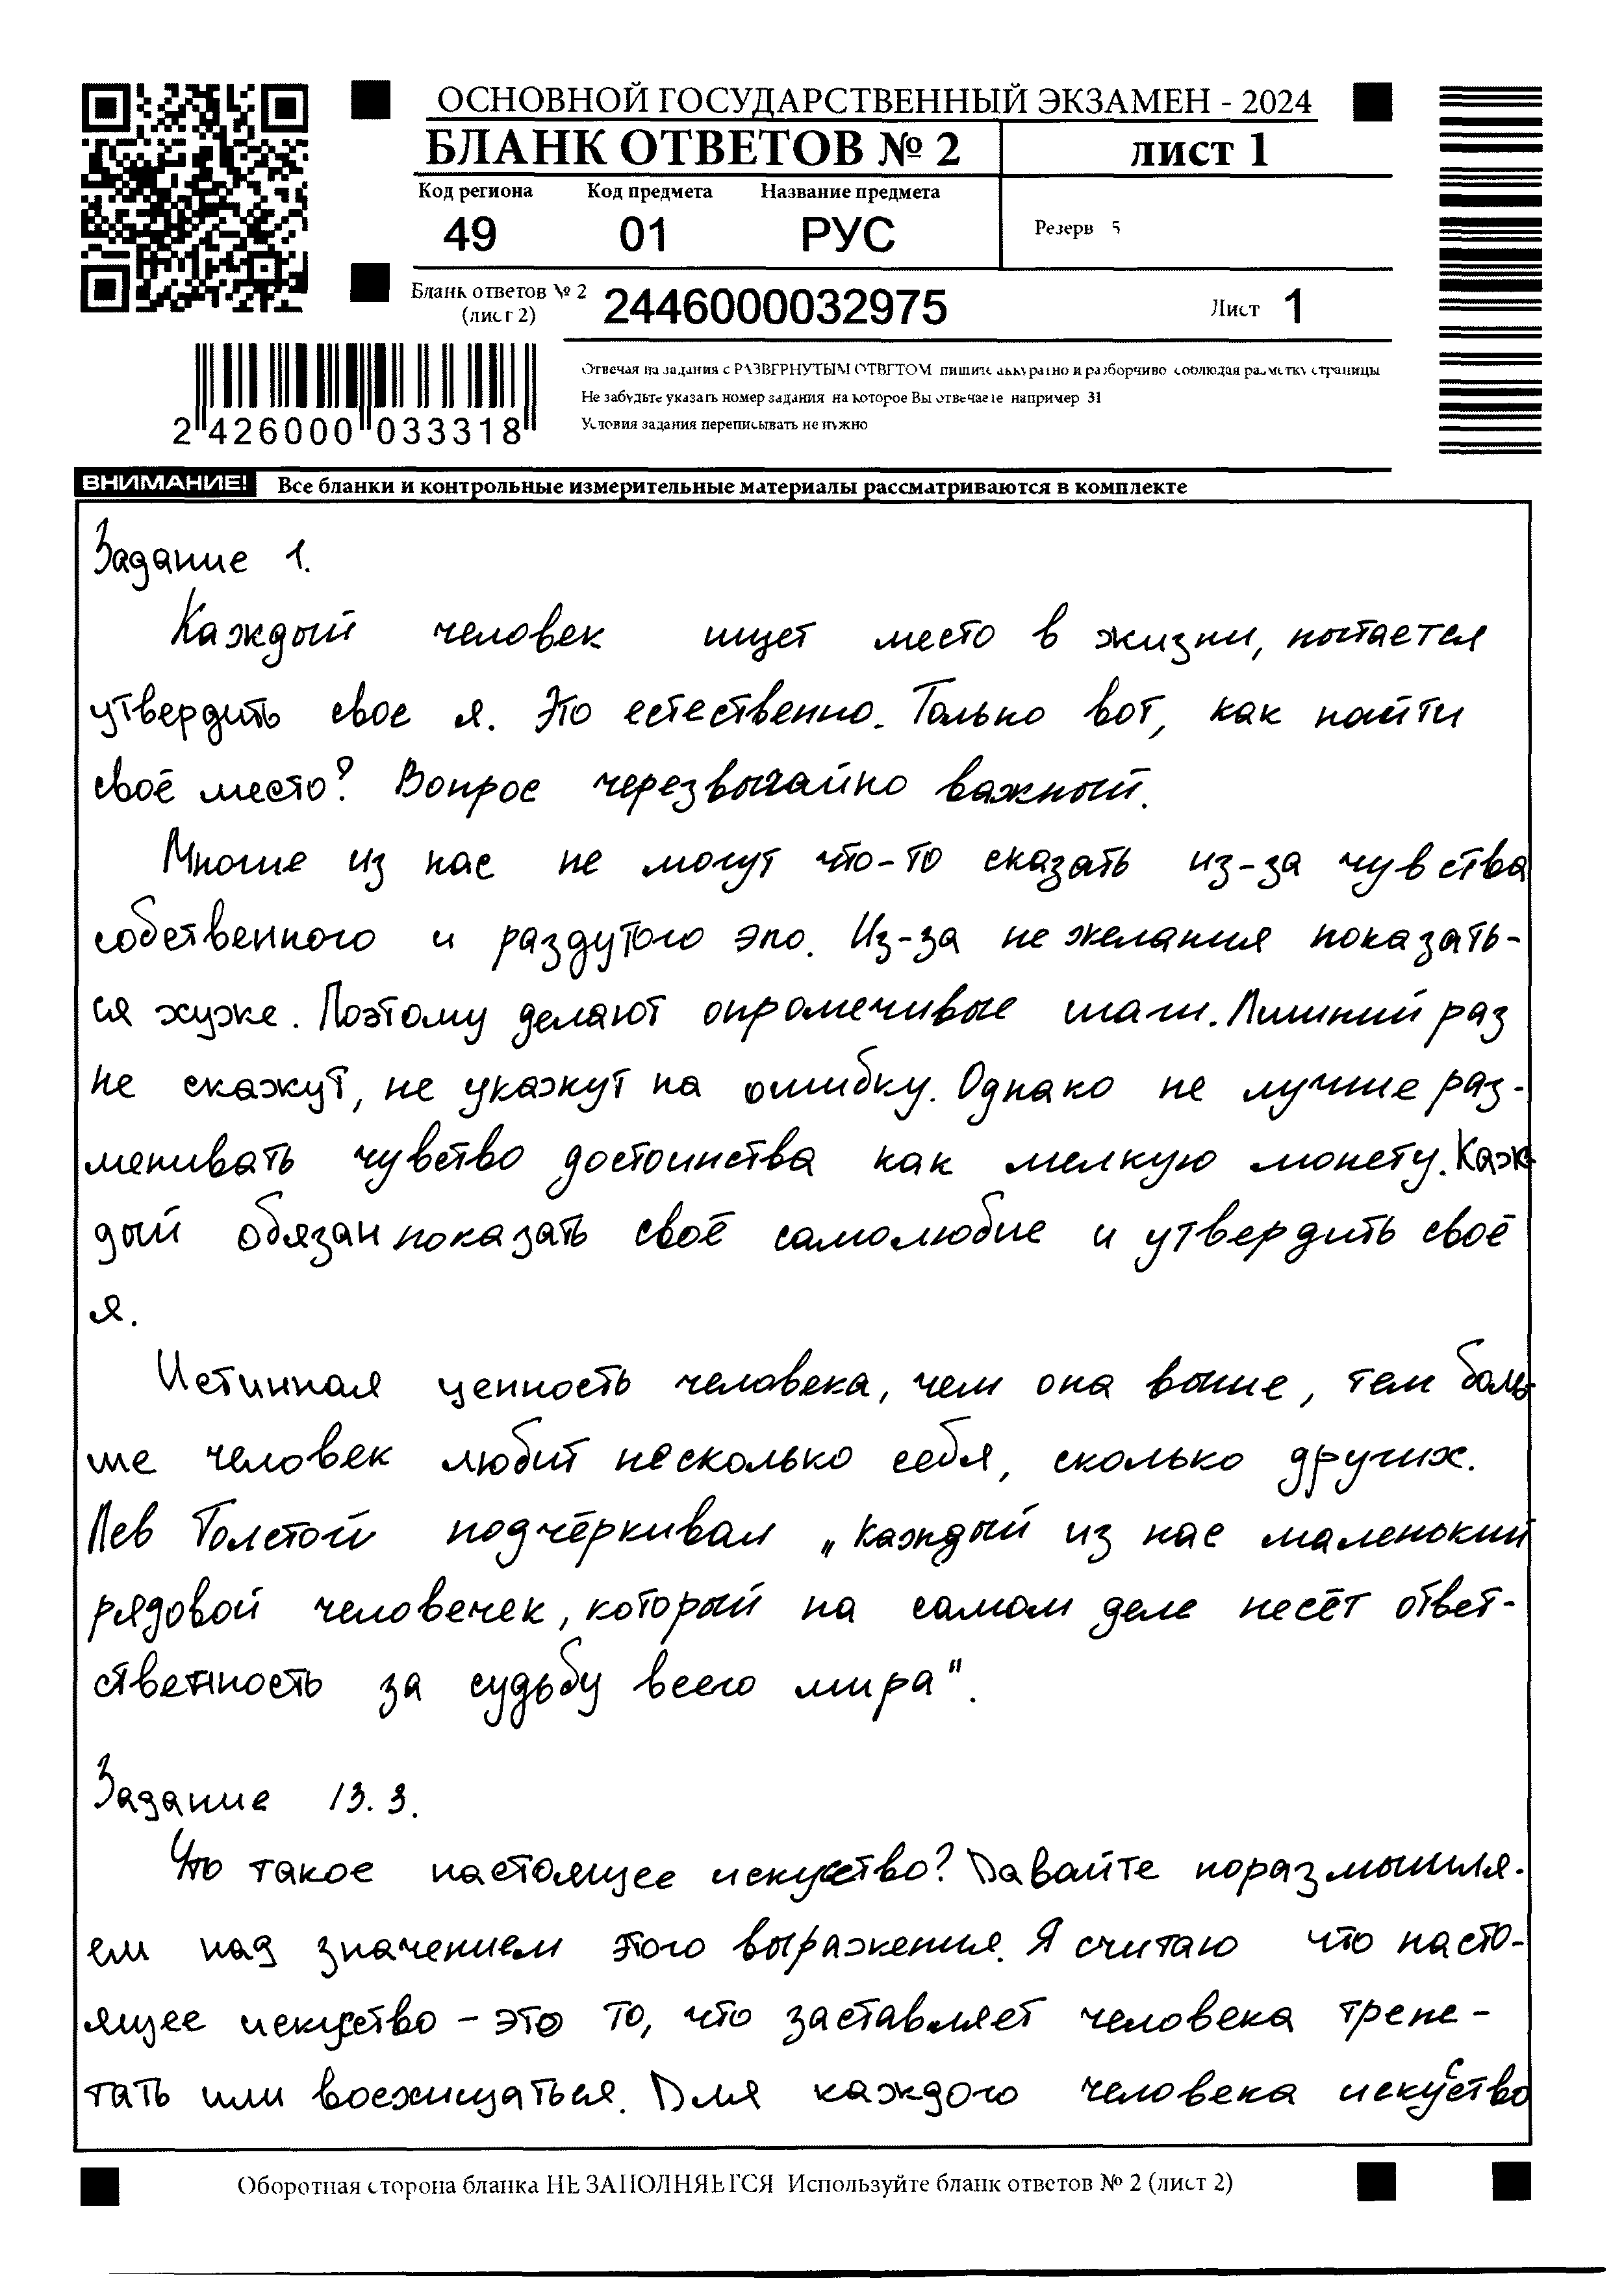 ОСНОВНОЙ ГОСУДАРСТВЕННЫЙ ЭКЗАМЕН - 2024
БЛАНК ОТВЕТОВ № 2
ЛИСТ 1
Код региона Код предмета Название предмета
49 01 РУС
Резерв 5
Бланк ответов № 2 (лист 2)
2446000032975
Лист 1
2 426000 033318
Отвечая на задания с РАЗВЕРНУТЫМ ОТВЕТОМ пишите аккуратно и разборчиво соблюдая разметку страницы
Не забудьте указать номер задания на которое Вы отвечаете например 31
Условия задания переписывать не нужно
ВНИМАНИЕ! Все бланки и контрольные измерительные материалы рассматриваются в комплекте
Задание 1.
Каждый человек ищет место в жизни, пытается
утвердить свое я. Это естественно. Только вот, как найти
своё место? Вопрос черезвычайно важный.
Многие из нас не могут что-то сказать из-за чувства
собственного и раздутого эго. Из-за не желания показать-
ся хуже. Поэтому делают опромечивые шаги. Лишний раз
не скажут, не укажут на ошибку. Однако не лучше раз-
менивать чувство достоинства как мелкую монету. Каж
дый обязан показать своё самолюбие и утвердить своё
я.
Истинная ценность человека, чем она выше, тем боль
ше человек любит несколько себя, сколько других.
Лев Толстой подчёркивал „каждый из нас маленький
рядовой человечек, который на самом деле несёт ответ-
ственность за судьбу всего мира".
Задание 13.3.
Что такое настоящее искуство? Давайте поразмышля-
ем над значением этого выражения. Я считаю что насто-
ящее искуство - это то, что заставляет человека трепе-
тать или восхищаться. Для каждого человека искусство
Оборотная сторона бланка НЕ ЗАПОЛНЯЕТСЯ Используйте бланк ответов № 2 (лист 2)